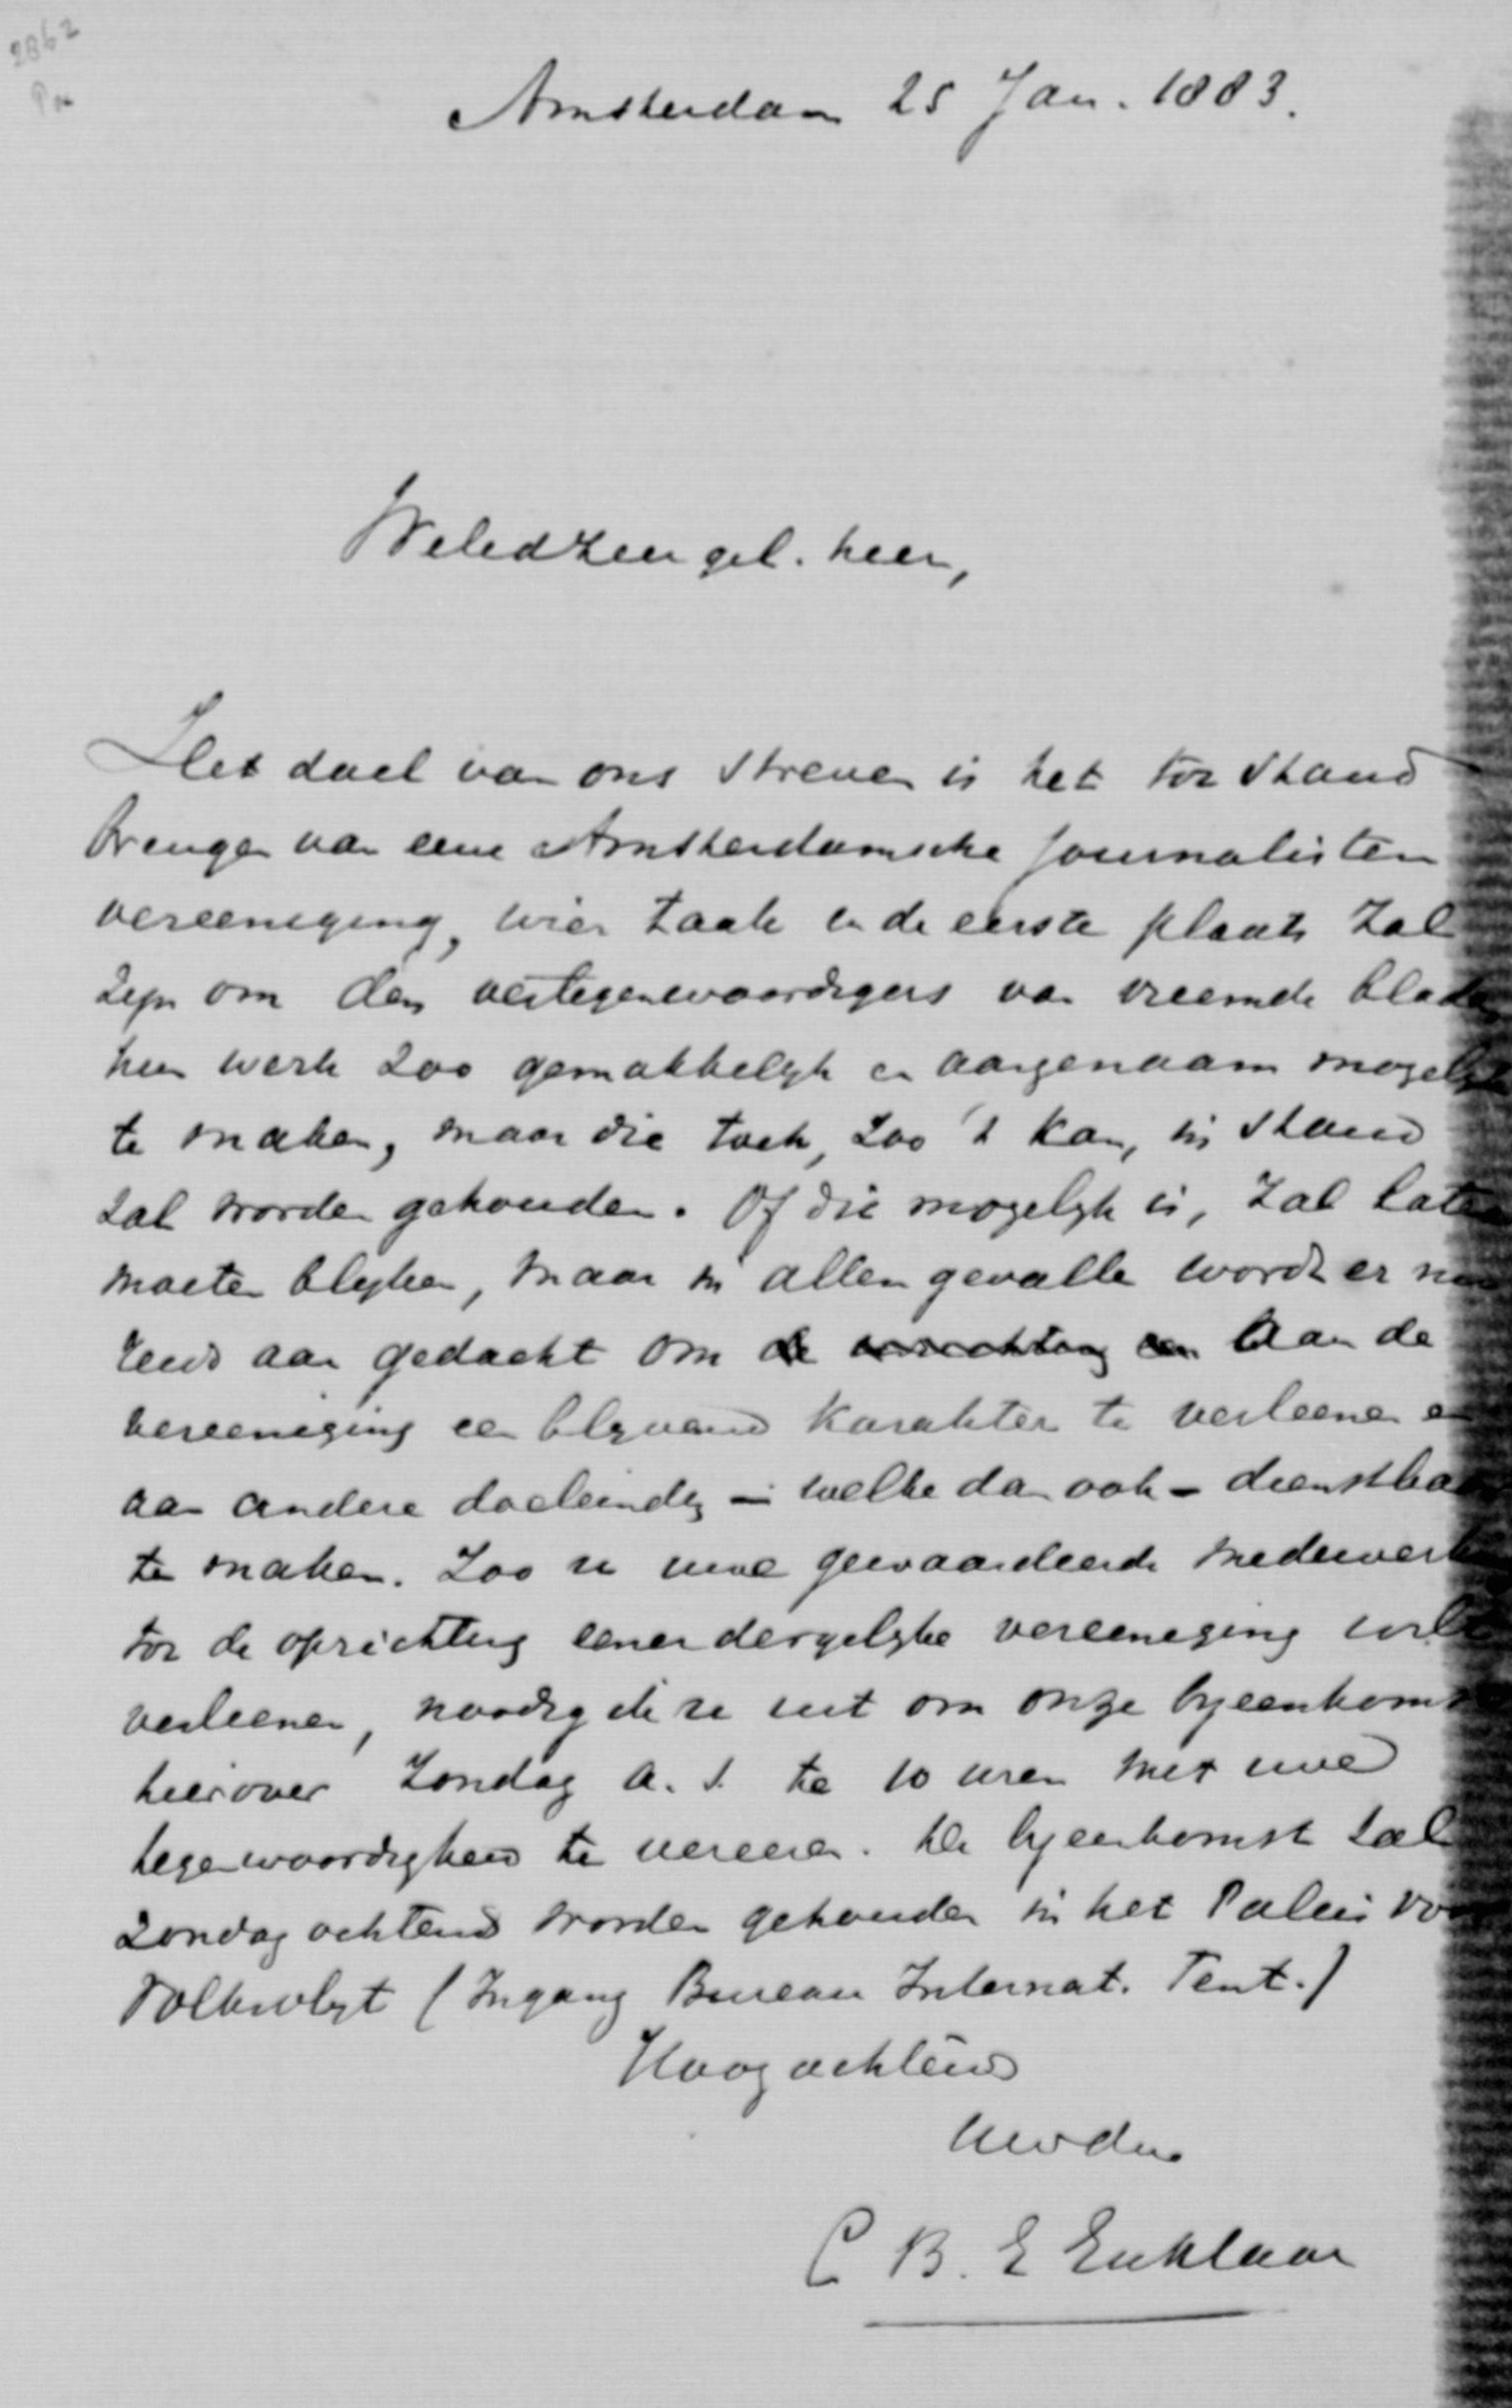 2862
Amsterdam 25 Jan. 1883.
Weledzeergel. heer,
Het doel van ons streven is het tot stand
brengen van eene Amsterdamsche journalisten
vereeniging, wier taak in de eerste plaats zal
zijn om den vertegenwoordigers van vreemde blade
hun werk zoo gemakkelijk en aangenaam mogelijk
te maken, maar die toch, zoo 't kan, in stand
zal worden gehouden. Of die mogelijk is, zal later
moeten blijken, maar in allen gevalle wordt er
reeds aan gedacht om de aan de
vereeniging een blijvend karakter te verleenen en
aan andere doeleinden - welke dan ook - dienstbaar
te maken. Zoo u uwe gewaardeerde medewerk
tot de oprichting eener dergelijke vereeniging wilt
verleenen, noodig ik u uit om onze bijeenkomst
hierover Zondag a. s. te 10 uren met uwe
tegenwoordigheid te vereeren. De bijeenkomst zal
Zondag ochtend worden gehouden in het Paleis voor
Volksvlijt (Ingang Bureau Internat. Tent.)
Hoogachtend
Uwdn.
C B. E Enklaar